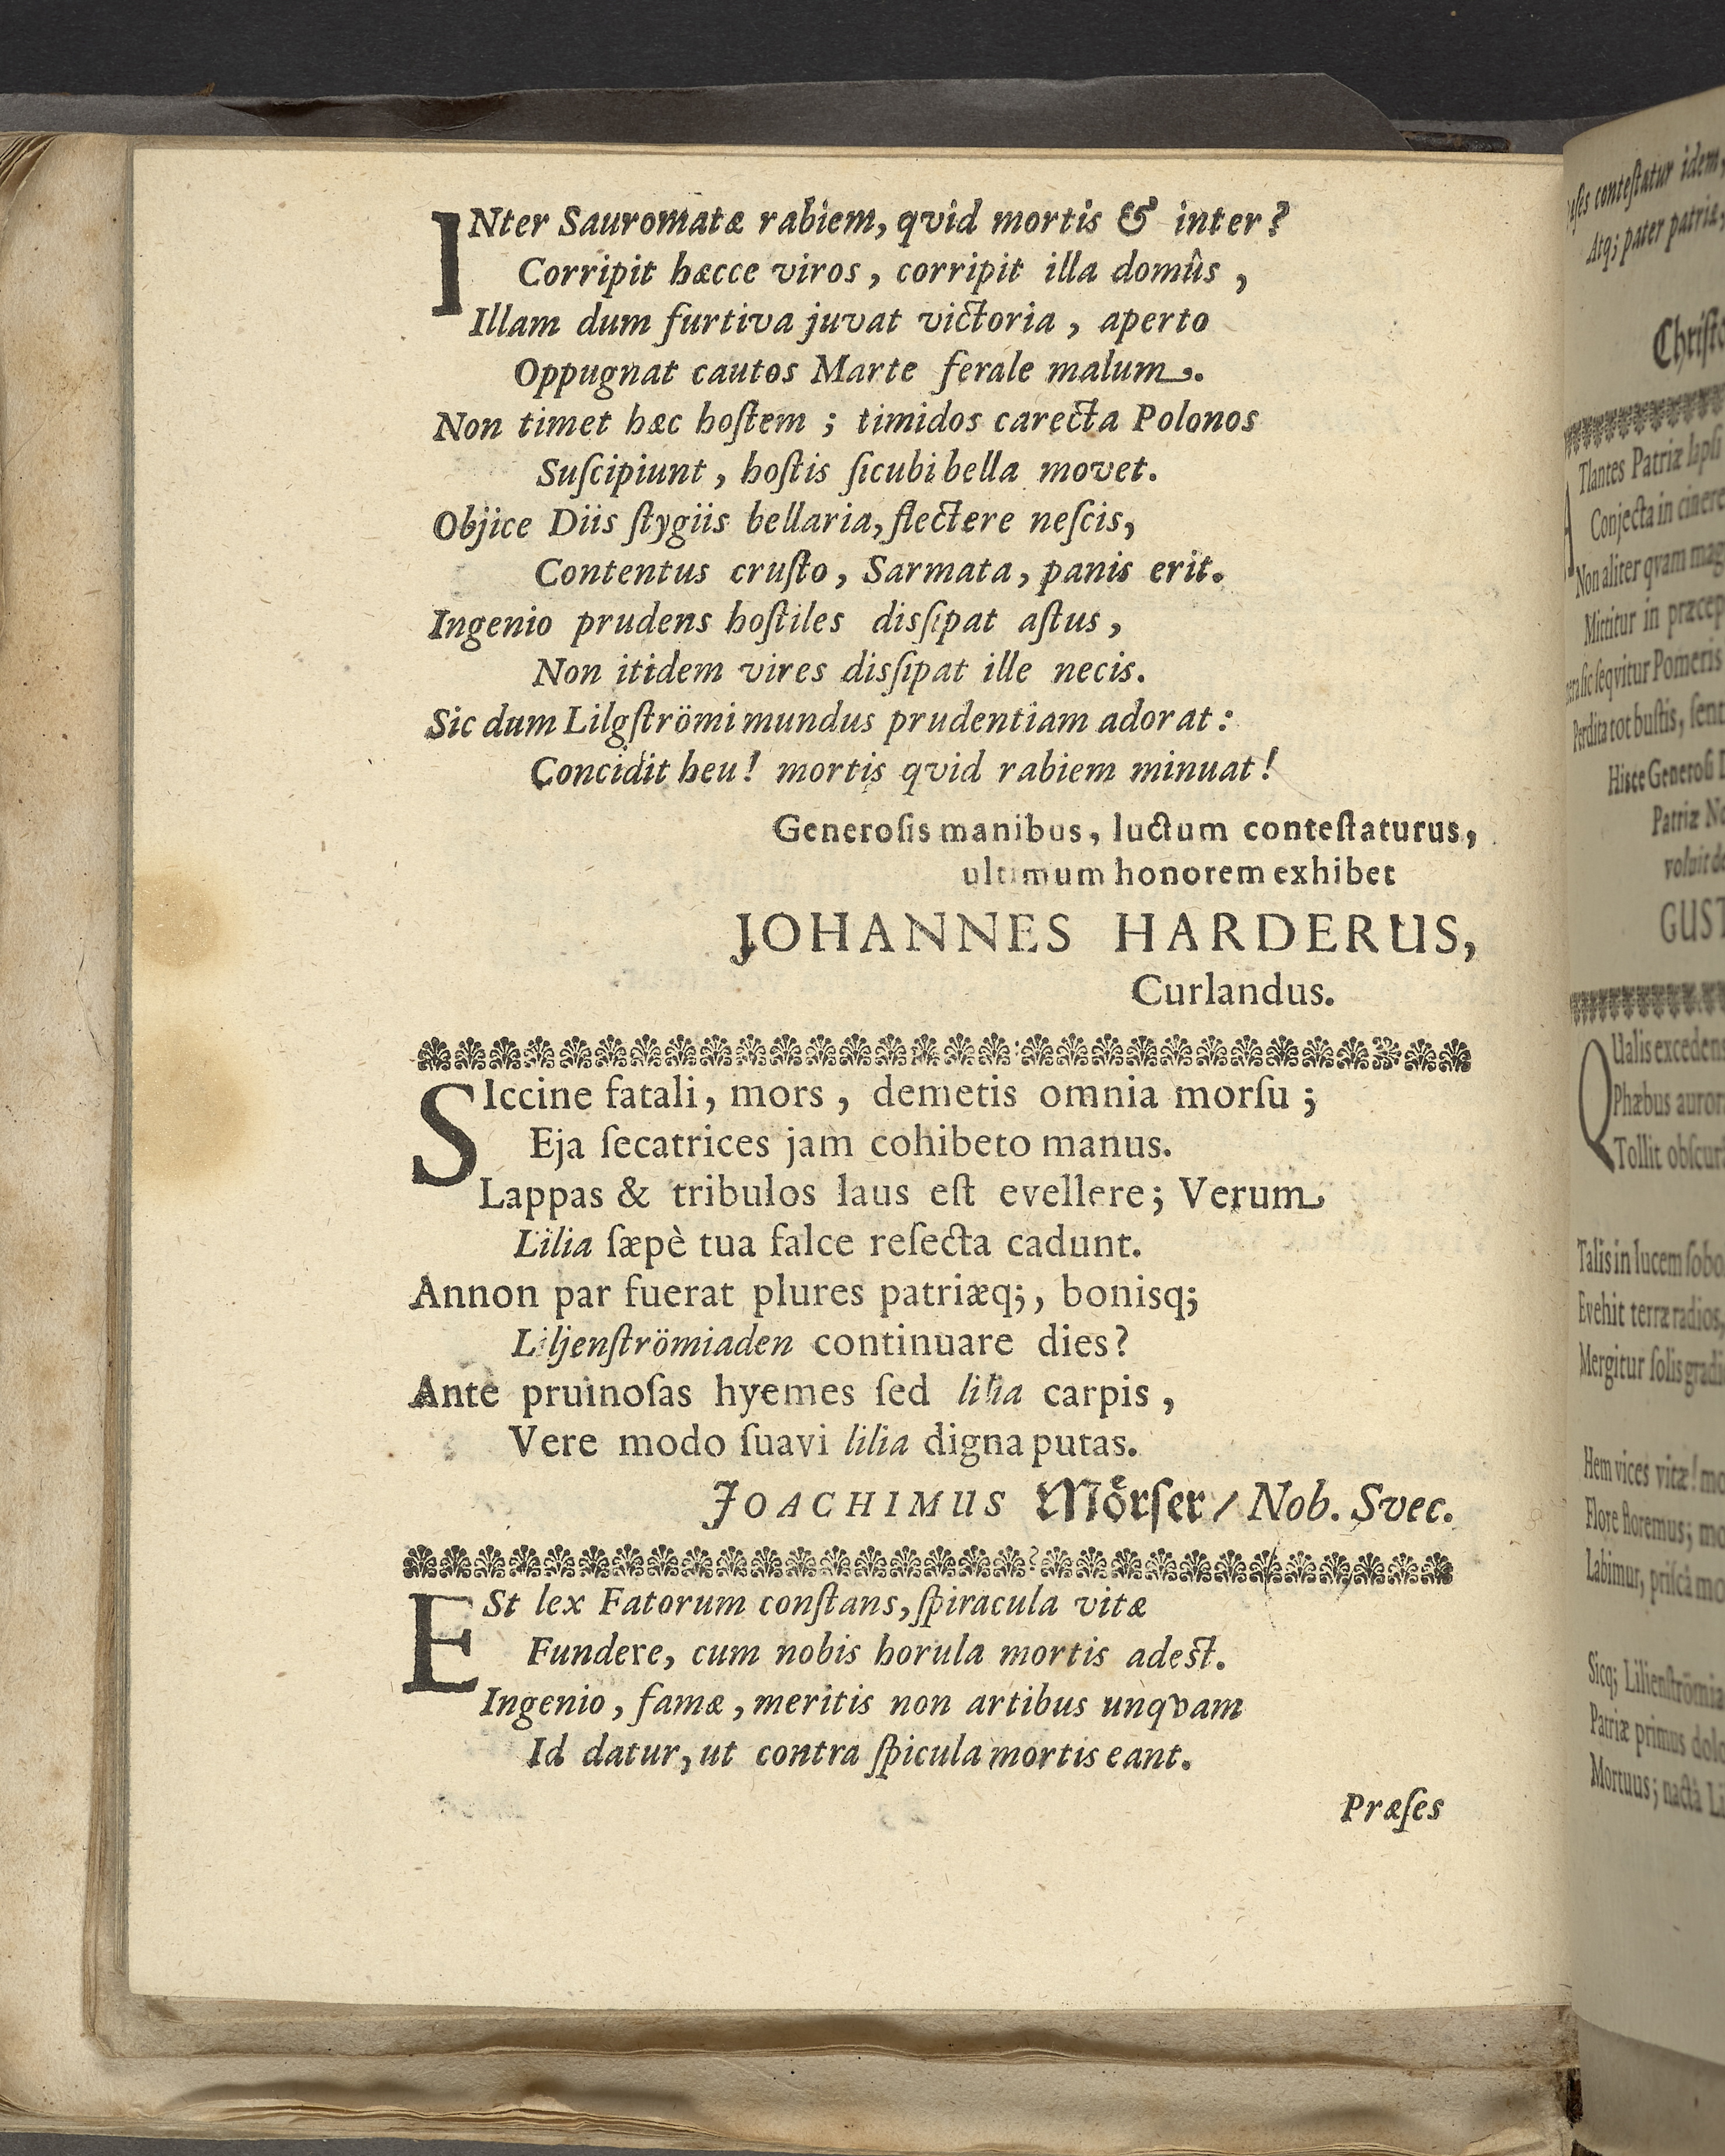 INter Sauromatæ rabiem, qvid mortis & inter?
Corripit hæcce viros, corripit illa domûs,
Illam dum furtiva juvat victoria, aperto
Oppugnat cautos Marte ferale malum.
Non timet hæc hoſtem; timidos carecta Polonos
Suſcipiunt, hoſtis ſicubi bella movet.
Objice Diis ſtygiis bellaria, flectere neſcis,
Contentus cruſto, Sarmata, panis erit.
Ingenio prudens hoſtiles disſipat aſtus,
Non itidem vires disſipat ille necis.
Sic dum Lilgſtrömi mundus prudentiam adorat:
Concidit heu! mortis qvid rabiem minuat!
Generoſis manibus, luctum conteſtaturus,
ultimum honorem exhibet
JOHANNES HARDERUS,
Curlandus.
SIccine fatali, mors, demetis omnia morſu;
Eja ſecatrices jam cohibeto manus.
Lappas & tribulos laus eſt evellere; Verum
Lilia ſæpè tua falce reſecta cadunt.
Annon par fuerat plures patriæq;, bonisq;
Liljenſtrömiaden continuare dies?
Ante pruinoſas hyemes ſed lilia carpis,
Vere modo ſuavi lilia digna putas.
JOACHIMUS Mörſer/ Nob. Svec.
ESt lex Fatorum conſtans, ſpiracula vitæ
Fundere, cum nobis horula mortis adeſt.
Ingenio, famæ, meritis non artibus unqvam
Id datur, ut contra ſpicula mortis eant.
Præſes
conteſtatur idem,
Atq; pater patriæ,
Tlantes Patriæ lapſi
Conjecta in cinere
Non aliter qvam mag
Mittitur in præcep
ſic ſeqvitur Pomeris
Perdita tot buſtis, ſent
Hisce Generoſi
Patriæ
voluit
GUST
QUalis excedens
Phæbus auror
Tollit obſcur
Talis in lucem ſobo
Evehit terræ radios,
Mergitur ſolis gradi
Hem vices vitæ! mo
Flore floremus; mo
Labimur, priſcà mo
Sicq; Lilienſtrömia
Patriæ primus dolo
Mortuus; nactà Li